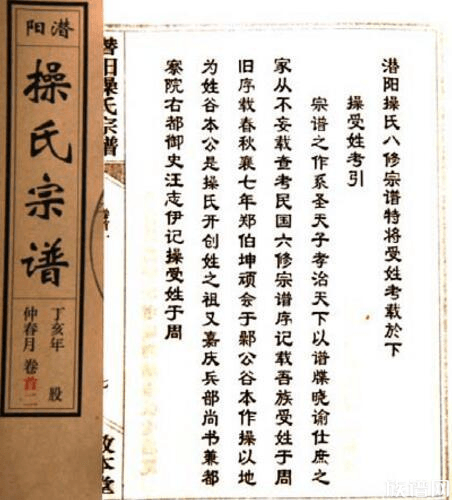 潜阳操氏八修宗谱特将受姓考载於下
操受姓考引
宗谱之作系圣天子孝治天下以谱牒晓谕仕庶之
家从不妄载查考民国六修宗谱序记载吾族受姓于周
旧序载春秋襄七年郑伯坤顽会于鄵公谷本作操以地
为姓谷本公是操氏开创姓之祖又嘉庆兵部尚书兼都
察院右都御史汪志伊记操受姓于周
潜阳操氏宗谱
卷首
本堂
潜阳
操氏宗谱
丁亥年 股
仲春月 卷首二